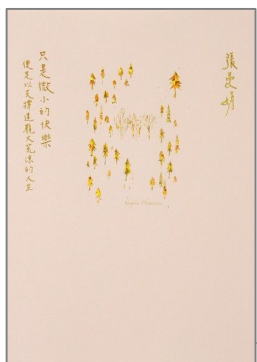 張曼娟
只是微小的快樂
便足以支撐這龐大荒涼的人生